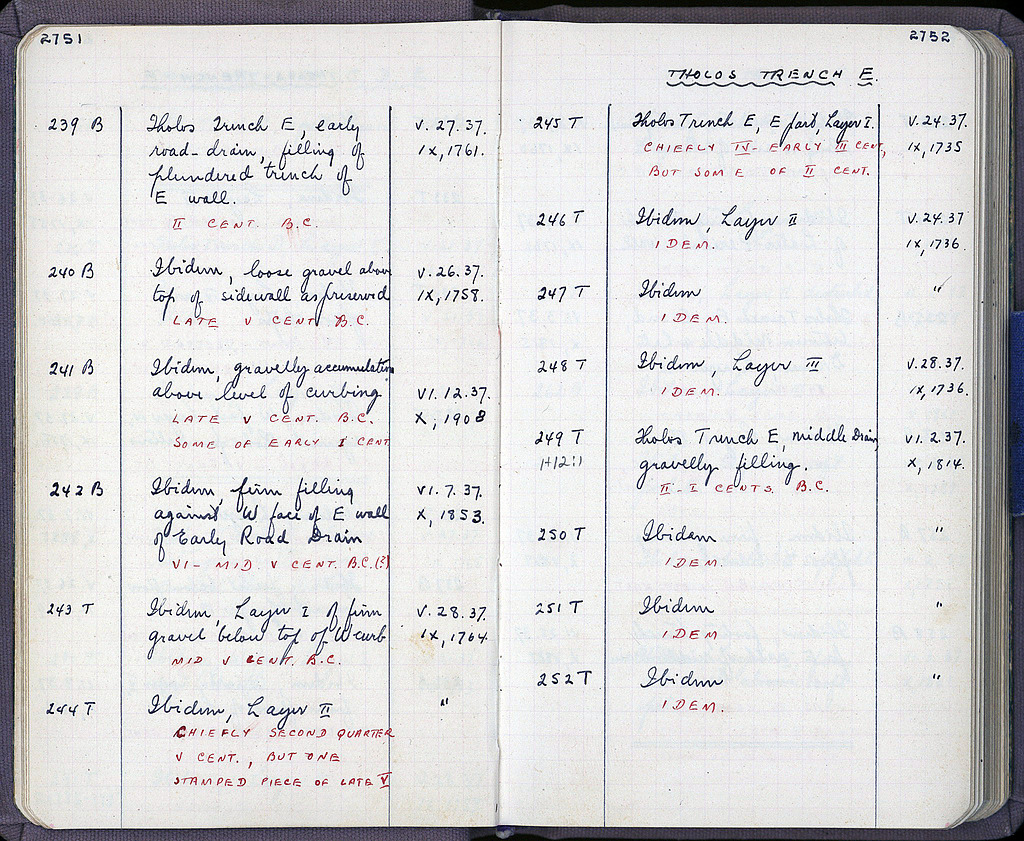 2751
239 B Tholos Trench E, early V.27.37.
road-drain, filling of IX,1761.
plundered trench of
E wall.
II CENT. B.C.
240 B Ibidem, loose gravel above V.26.37.
top of sidewall as preserved IX,1758.
LATE V CENT. B.C.
241 B Ibidem, gravelly accumulation
above level of curbing VI.12.37.
LATE V CENT. B.C. X,1908
SOME OF EARLY I CENT
242 B Ibidem, firm filling VI.7.37.
against W face of E wall X,1853.
of Early Road Drain
VI - MID V CENT. B.C.(?)
243 T Ibidem, Layer I of firm V.28.37.
gravel below top of W curb IX,1764
MID V CENT. B.C.
244 T Ibidem, Layer II "
CHIEFLY SECOND QUARTER
V CENT., BUT ONE
STAMPED PIECE OF LATE V
2752
THOLOS TRENCH E.
245 T Tholos Trench E, E part, Layer I. V.24.37.
CHIEFLY IV - EARLY III CENT, IX,1735
BUT SOME OF II CENT.
246 T Ibidem, Layer II V.24.37
IDEM. IX,1736.
247 T Ibidem "
IDEM.
248 T Ibidem, Layer III V.28.37.
IDEM. IX,1736.
249 T Tholos Trench E, middle Drain, VI.2.37.
H12:1 gravelly filling. X,1814.
II - I CENTS. B.C.
250 T Ibidem "
IDEM.
251 T Ibidem "
IDEM
252 T Ibidem "
IDEM.